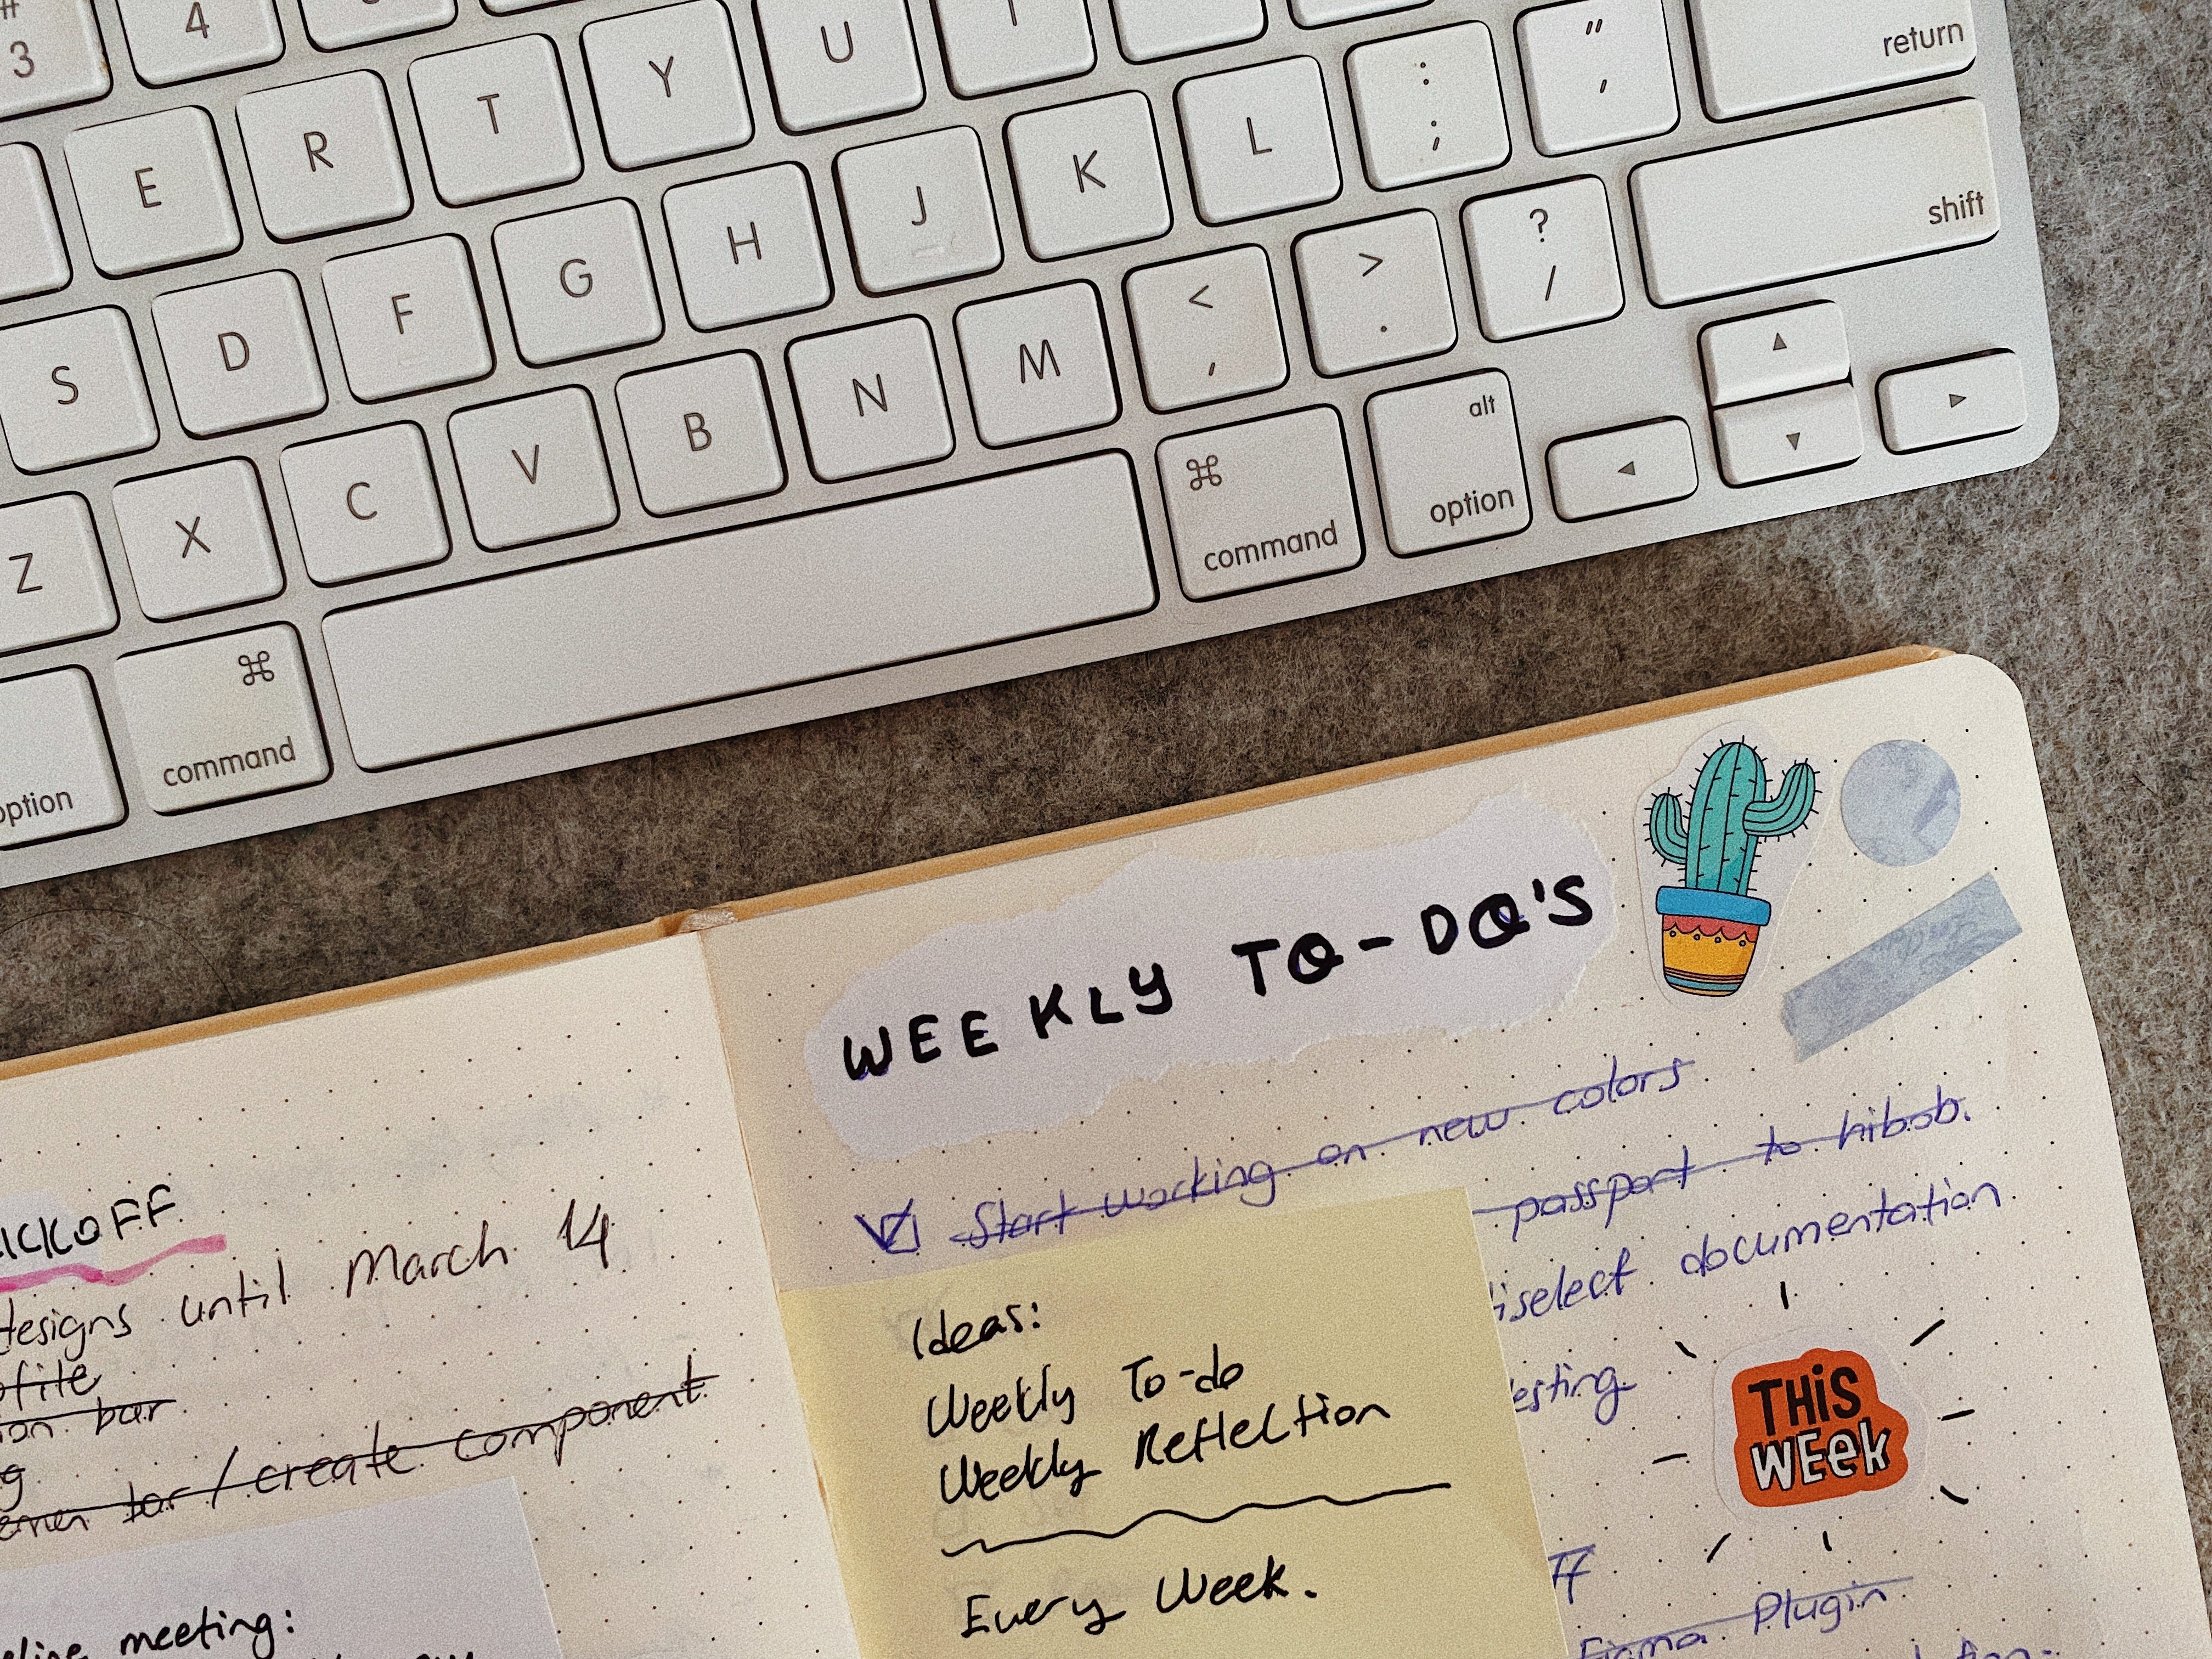 #
3
4
E
R
T
Y
U
return
S
D
F
G
H
J
K
L
:
;
"
'
shift
Z
X
C
V
B
N
M
<
,
>
.
?
/
option
⌘
command
⌘
command
alt
option
▲
◀
▼
▶
ICKOFF
designs until March 14
ofile
ion bar
g
bar / create component
eline meeting:
WEEKLY TO-DO'S
Start working on new colors
passport to hibob.
iselect documentation
esting
Ideas:
Weekly To-do
Weekly Reflection
Every Week.
THIS
WEEK
Figma Plugin